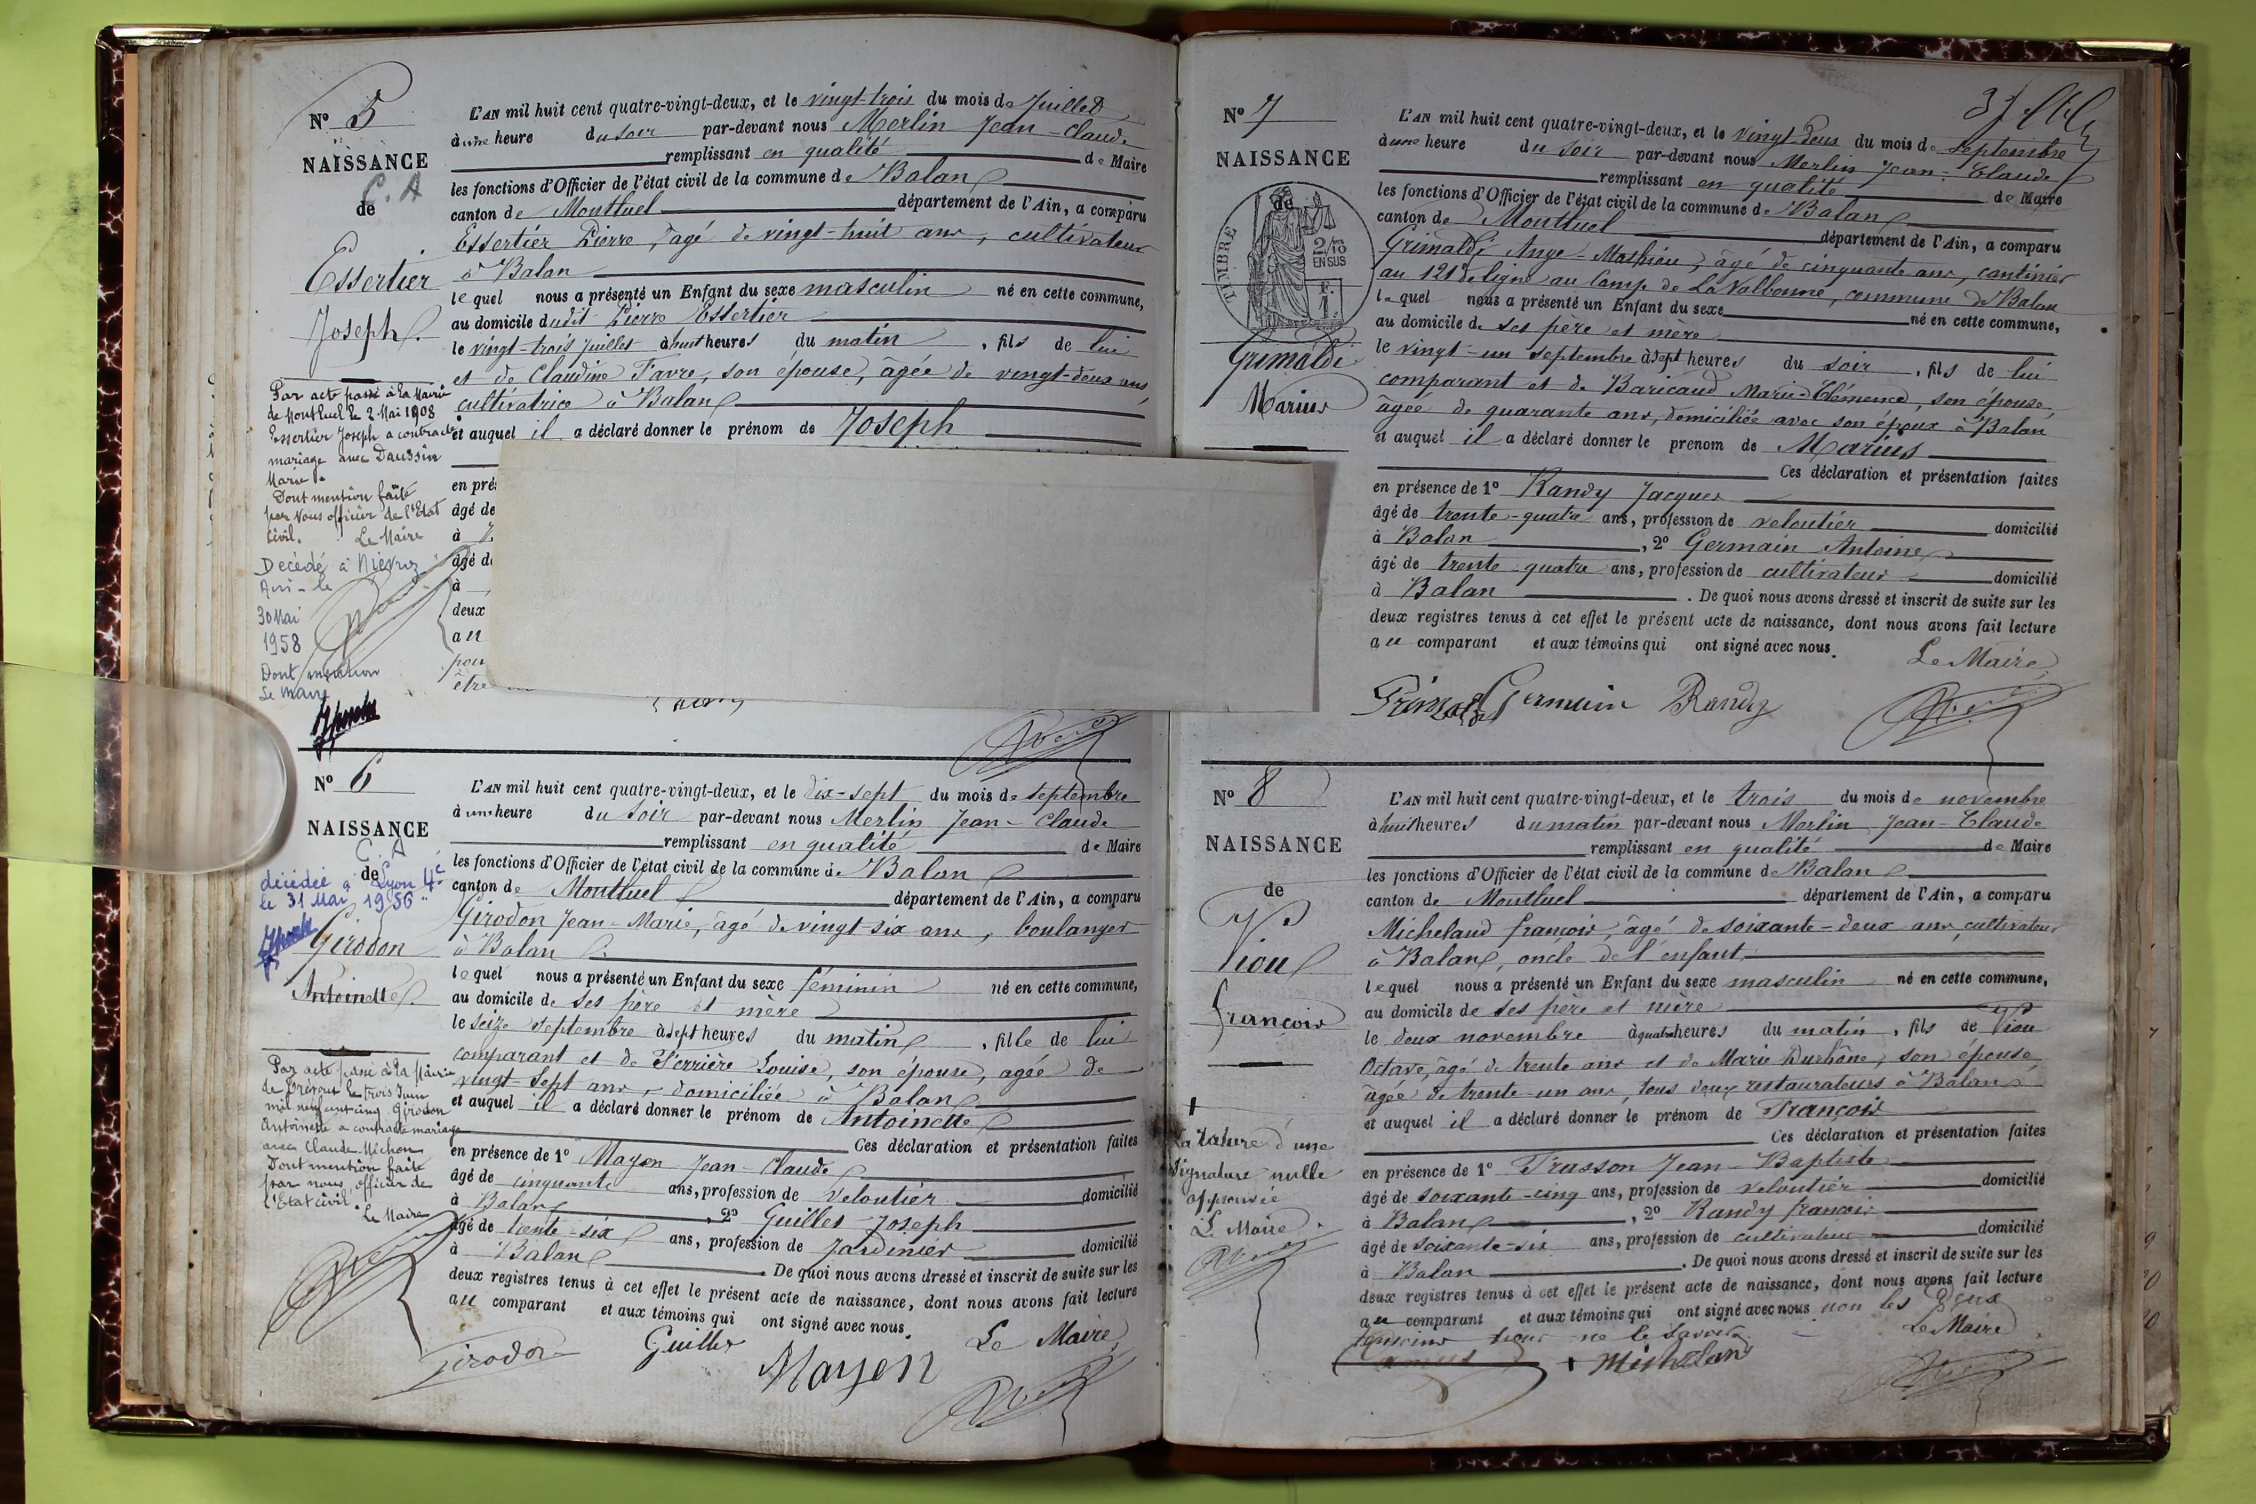 N° 5
NAISSANCE
C. A
de
Essertier
Joseph
Par acte passé à la Mairie
de Montluel le 2 Mai 1908
Essertier Joseph a contracté
mariage avec Daussin
Marie.
Dont mention faite
par Nous officier de l'Etat
Civil. Le Maire
Décédé à Niévroz
Ain - le
30 Mai
1958
Dont mention
Le Maire
L'AN mil huit cent quatre-vingt-deux, et le vingt-trois du mois de Juillet
à une heure du soir par-devant nous Merlin Jean-Claude
remplissant en qualité de Maire
les fonctions d'Officier de l'état civil de la commune de Balan
canton de Montluel département de l'Ain, a comparu
Essertier Pierre, âgé de vingt-huit ans, cultivateur
à Balan
lequel nous a présenté un Enfant du sexe masculin né en cette commune,
au domicile dudit Pierre Essertier
le vingt-trois Juillet à huit heures du matin, fils de lui
et de Claudine Favre, son épouse, âgée de vingt-deux ans,
cultivatrice à Balan
et auquel il a déclaré donner le prénom de Joseph
en pré
âgé de
à
âgé de
à
deux
au
pou
être
N° 6
NAISSANCE
C. A
de
décédée à Lyon 4e
le 31 Mai 1956
Girodon
Antoinette
Par acte passé à la Mairie
de le trois Juin
mil neuf cent cinq Girodon
Antoinette a contracté mariage
avec Claude Michon
Dont mention faite
par nous, officier de
l'Etat civil.
Le Maire
L'AN mil huit cent quatre-vingt-deux, et le dix-sept du mois de septembre
à une heure du soir par-devant nous Merlin Jean-Claude
remplissant en qualité de Maire
les fonctions d'Officier de l'état civil de la commune de Balan
canton de Montluel département de l'Ain, a comparu
Girodon Jean-Marie, âgé de vingt-six ans, boulanger
à Balan
lequel nous a présenté un Enfant du sexe féminin né en cette commune,
au domicile de ses père et mère
le seize septembre à sept heures du matin, fille de lui
comparant et de Ferrière Louise, son épouse, agée de
vingt-sept ans, domiciliée à Balan
et auquel il a déclaré donner le prénom de Antoinette
Ces déclaration et présentation faites
en présence de 1° Mayen Jean-Claude
âgé de cinquante ans, profession de veloutier domicilié
à Balan, 2° Guiller Joseph
âgé de trente-six ans, profession de Jardinier domicilié
à Balan. De quoi nous avons dressé et inscrit de suite sur les
deux registres tenus à cet effet le présent acte de naissance, dont nous avons fait lecture
au comparant et aux témoins qui ont signé avec nous.
Girodon Guiller Mayen Le Maire
N° 7
NAISSANCE
de
TIMBRE
2/10
EN SUS
Grimaldi
Marius
L'AN mil huit cent quatre-vingt-deux, et le vingt deux du mois de septembre
à une heure du soir par-devant nous Merlin Jean-Claude
remplissant en qualité de Maire
les fonctions d'Officier de l'état civil de la commune de Balan
canton de Montluel département de l'Ain, a comparu
Grimaldi Ange-Mathieu, âgé de cinquante ans, cantinier
au 121e de ligne au Camp de La Valbonne, commune de Balan
lequel nous a présenté un Enfant du sexe né en cette commune,
au domicile de ses père et mère
le vingt-un septembre à sept heures du soir, fils de lui
comparant et de Baricaud Marie-Clémence, son épouse,
âgée de quarante ans, domiciliée avec son époux à Balan
et auquel il a déclaré donner le prénom de Marius
Ces déclaration et présentation faites
en présence de 1° Randy Jacques
âgé de trente-quatre ans, profession de veloutier domicilié
à Balan, 2° Germain Antoine
âgé de trente-quatre ans, profession de cultivateur domicilié
à Balan. De quoi nous avons dressé et inscrit de suite sur les
deux registres tenus à cet effet le présent acte de naissance, dont nous avons fait lecture
au comparant et aux témoins qui ont signé avec nous.
Le Maire
Grimaldi Germain Randy
N° 8
NAISSANCE
de
Viou
François
La rature d'une
signature nulle
approuvée
Le Maire
L'AN mil huit cent quatre-vingt-deux, et le trois du mois de novembre
à huit heures du matin par-devant nous Merlin Jean-Claude
remplissant en qualité de Maire
les fonctions d'Officier de l'état civil de la commune de Balan
canton de Montluel département de l'Ain, a comparu
Michelaud François, âgé de soixante-deux ans, cultivateur
à Balan, oncle de l'enfant
lequel nous a présenté un Enfant du sexe masculin né en cette commune,
au domicile de ses père et mère
le deux novembre à quatre heures du matin, fils de Viou
Octave, âgé de trente ans et de Marie Durhône, son épouse
âgée de trente-un ans, tous deux restaurateurs à Balan
et auquel il a déclaré donner le prénom de François
Ces déclaration et présentation faites
en présence de 1° Trusson Jean-Baptiste
âgé de soixante-cinq ans, profession de veloutier domicilié
à Balan, 2° Randy François
âgé de soixante-six ans, profession de cultivateur domicilié
à Balan. De quoi nous avons dressé et inscrit de suite sur les
deux registres tenus à cet effet le présent acte de naissance, dont nous avons fait lecture
au comparant et aux témoins qui ont signé avec nous non les deux
témoins pour ne le savoir Le Maire
Michelan